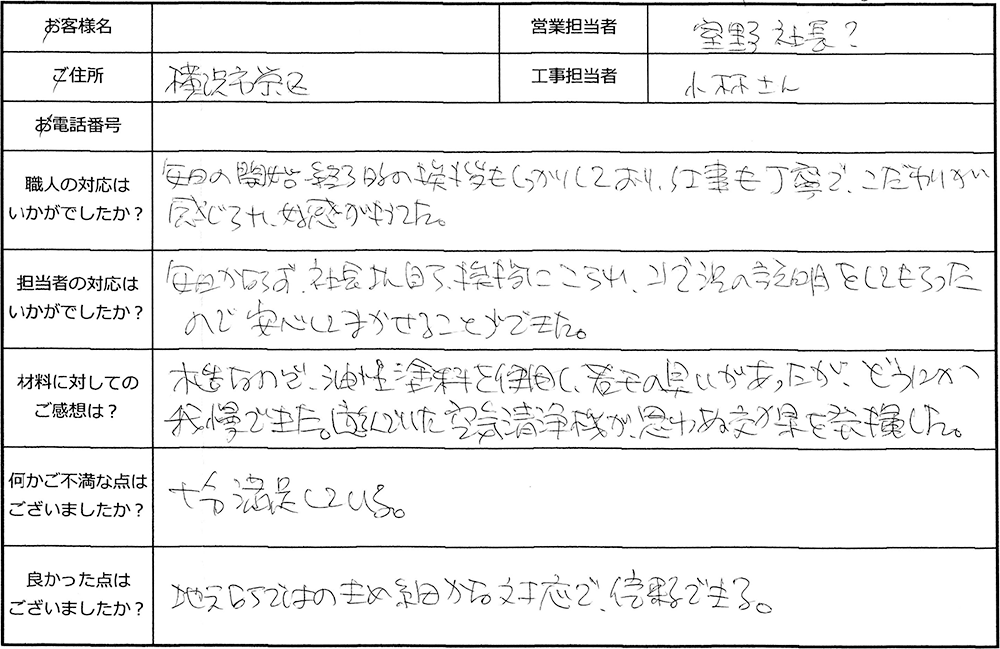 お客様名
営業担当者 室野社長?
ご住所 横浜市栄区
工事担当者 小林さん
お電話番号
職人の対応は
いかがでしたか?
毎日の開始 終了時の挨拶もしっかりしており、工事も丁寧で、こだわりが
感じられ、好感がもてた。
担当者の対応は
いかがでしたか?
毎日かならず、社長さん自ら、挨拶にこられ、状況の説明をしてもらった
ので安心してまかせることができた。
材料に対しての
ご感想は?
木造なので、油性塗料を使用し、若干の臭いがあったが、どうにか
我慢できた。遊んでいた空気清浄機が、思わぬ効果を発揮した。
何かご不満な点は
ございましたか?
十分満足している。
良かった点は
ございましたか?
地元ならではのきめ細かな対応で、信頼できる。